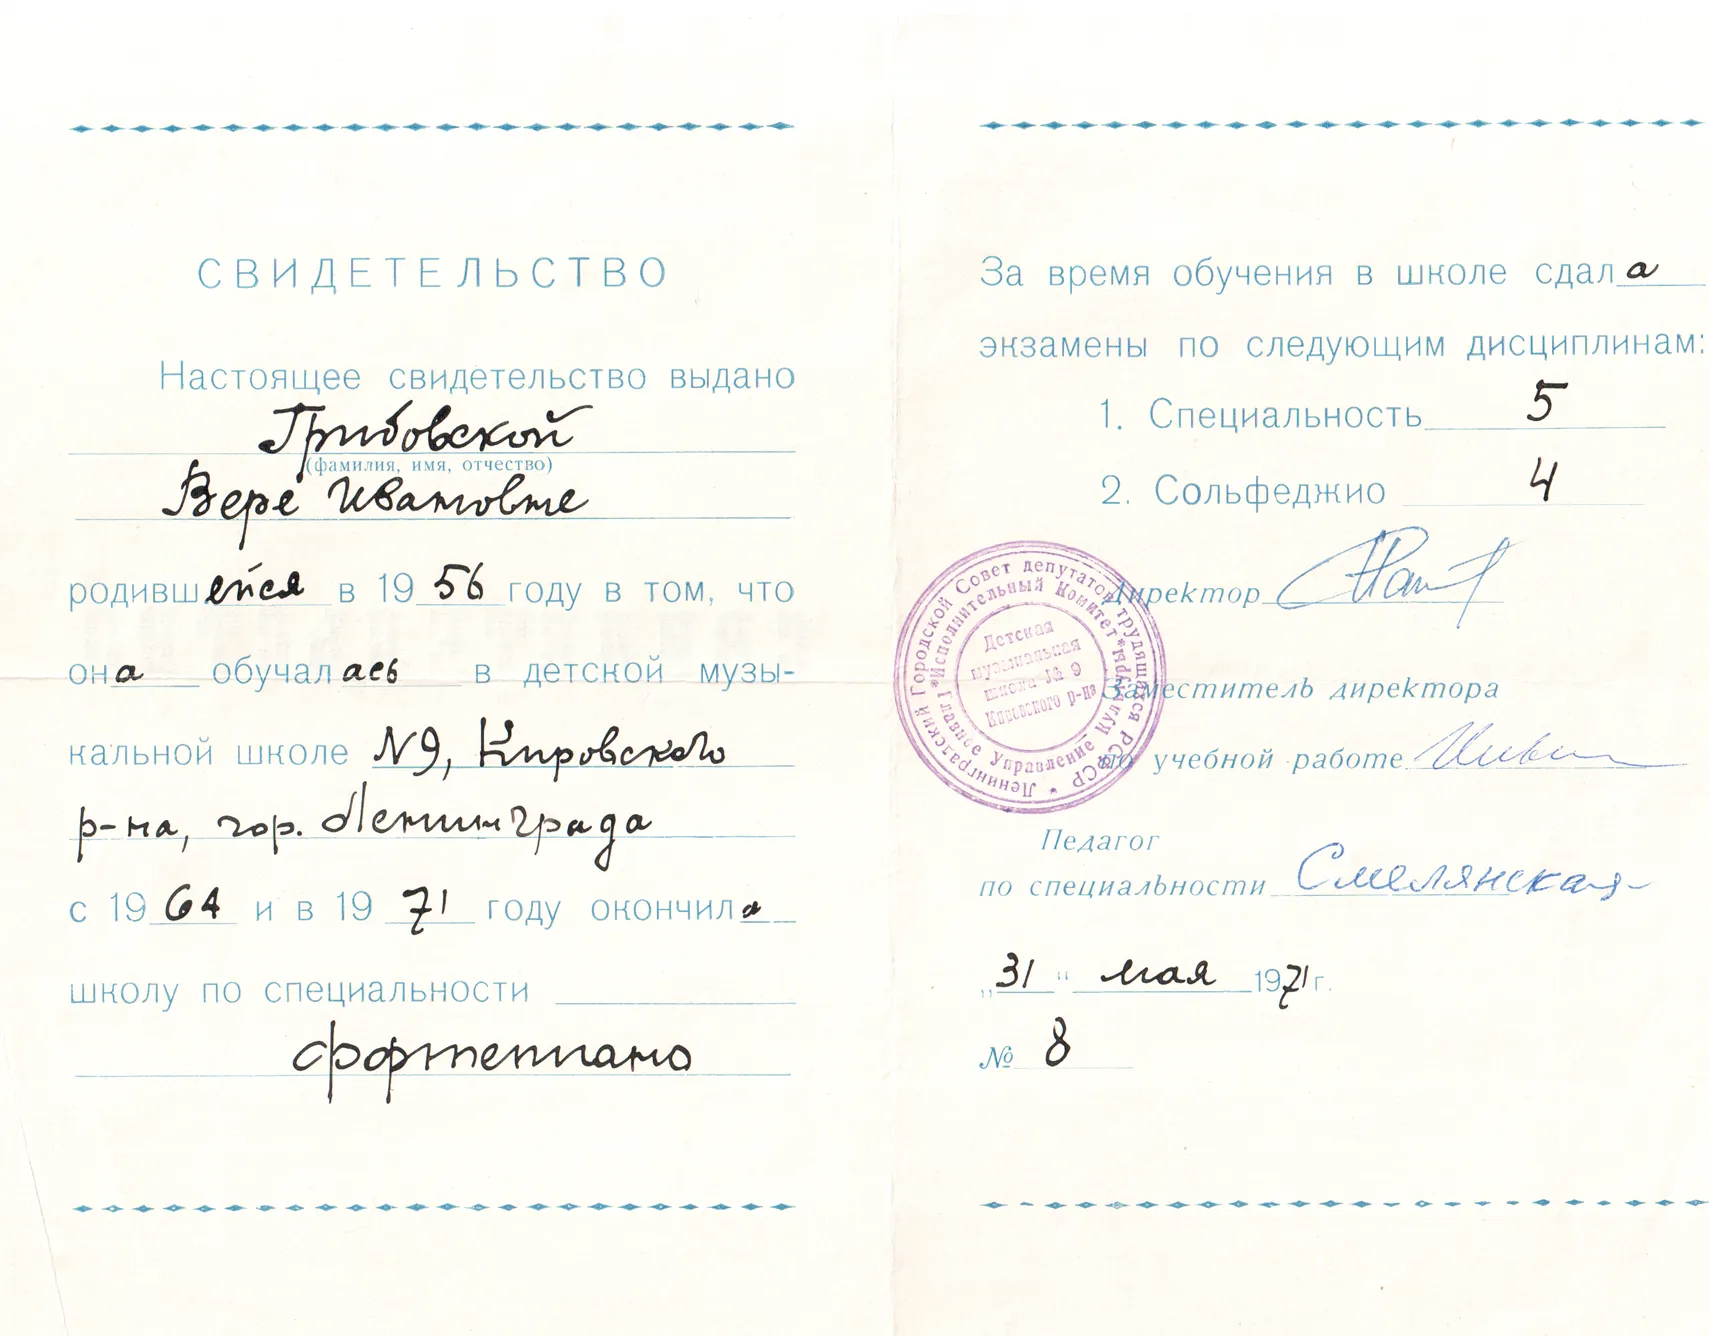 СВИДЕТЕЛЬСТВО
Настоящее свидетельство выдано
Грибовской
(фамилия, имя, отчество)
Вере Ивановне
родившейся в 1956 году в том, что
она обучалась в детской музы-
кальной школе N9, Кировского
р-на, гор. Ленинграда
с 1964 и в 1971 году окончила
школу по специальности
фортепиано
За время обучения в школе сдала
экзамены по следующим дисциплинам:
1. Специальность 5
2. Сольфеджио 4
Директор
Заместитель директора
по учебной работе
Педагог
по специальности Смелянская
„31“ мая 1971 г.
№ 8
Ленинградский Городской Совет депутатов трудящихся РСФСР *
Исполнительный Комитет * Главное Управление Культуры *
Детская
музыкальная
школа № 9
Кировского р-на